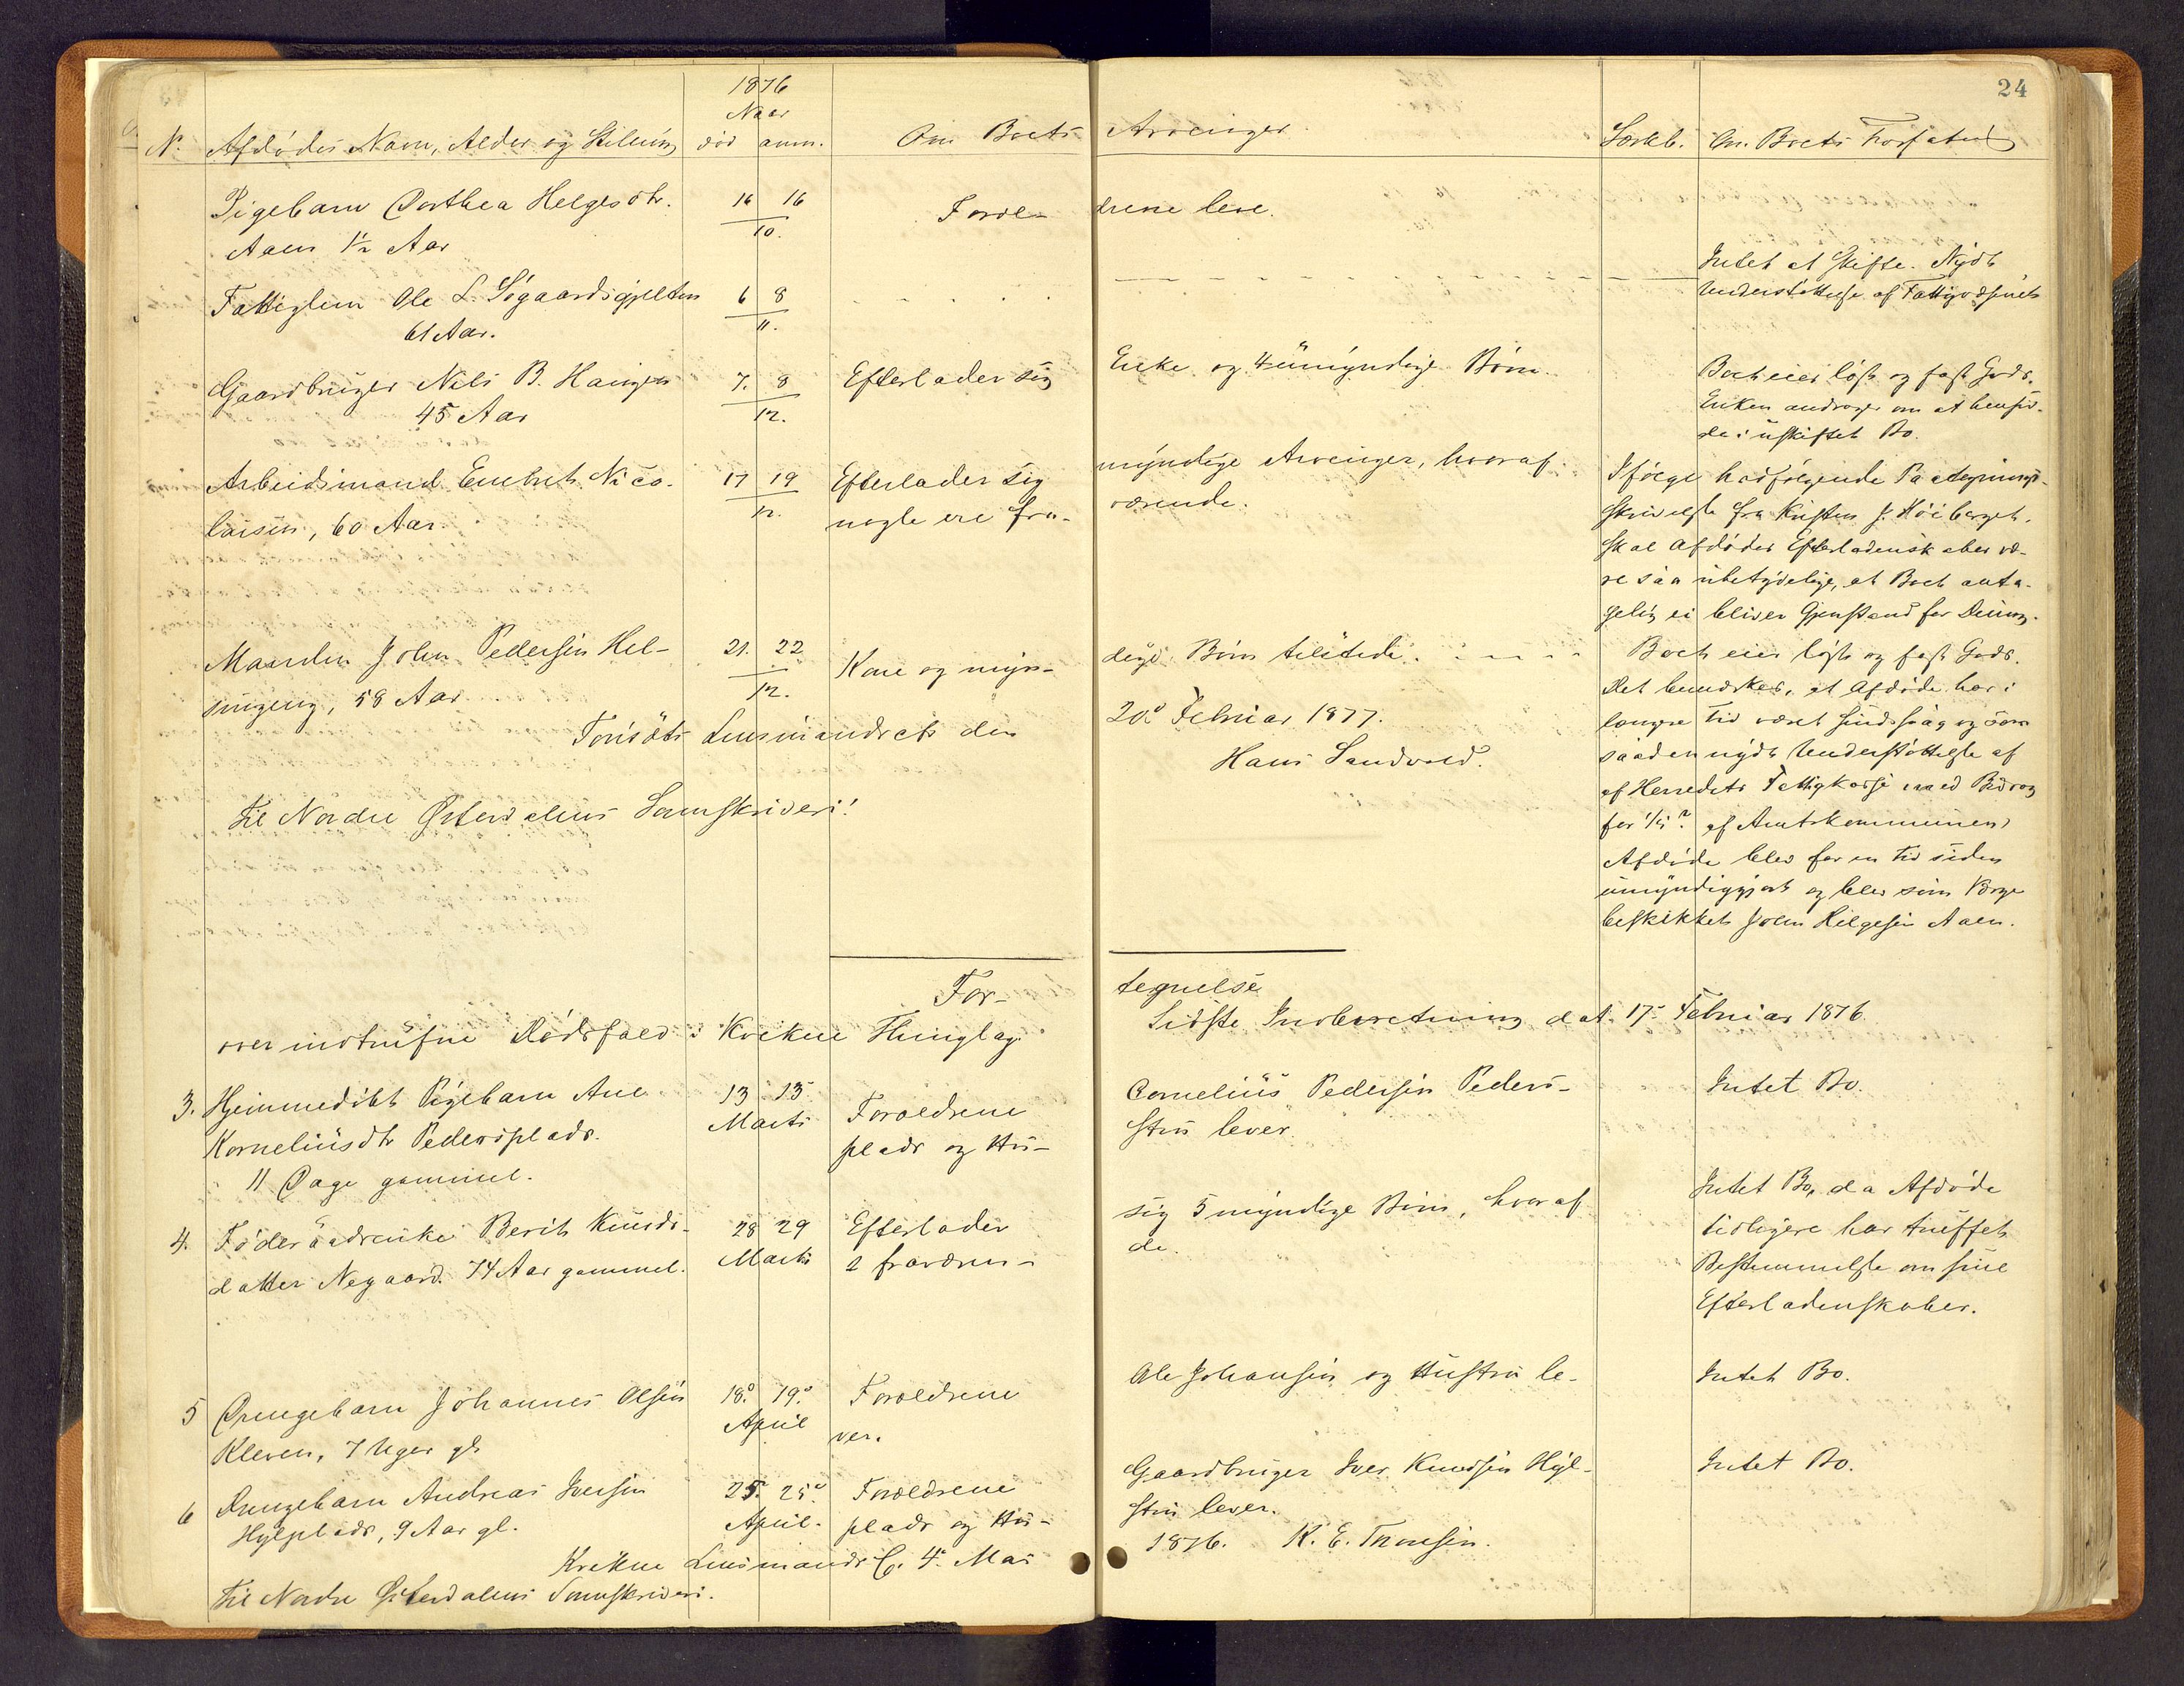 24
1876
Naar
N. Afdødes Navn, Alder og Stilling død anm. Om Boets Arvinger. Særkb. Om Boets Forfatn
Pigebarn Dorthea Helgesdtr. 16 16 Foræ- drene leve.
Aaen 1½ Aar 10.
Intet at skifte. Nydt
Fattiglem Ole L. Søgaardsgjelten 6 8
Understøttelse af Fattigvæsenet
61 Aar. 11.
Gaardbruger Nils B. Haugen 7. 8 Efterlader sig Enke og 4 umyndige Børn. Boet eier løst og fast Gods.
45 Aar 12.
Enken andrager om at hensid-
de i uskiftet Bo.
Arbeidsmand Embret Nico- 17 19 Efterlader sig myndige Arvinger, hvoraf
laisen, 60 Aar. 12. nogle ere fra- værende.
Ifølge hosfølgende Paategnings-
skrivelse fra Kirsten J. Høiberget.
skal Afdødes Efterladenskaber væ-
re saa ubetydelige, at Boet anta-
gelig ei bliver Gjenstand for Deling.
Manden John Pedersen Hel- 21. 22 Kone og myn- dige Børn tilstede.
singeng, 58 Aar 12.
Boet eier løst og fast Gods.
Det bemærkes, at Afdøde har i
længere Tid været sindssvag og som
saaden nydt Understøttelse af
af Herredets Fattigkasse med Bidrag
for af Amtskommunen
Afdøde blev for en Tid siden
umyndiggjort og blev som Værge
beskikket John Helgesen Aaen.
Tønsæts Lensmandsct den 20de Februar 1877.
Hans Sandvold.
Til Nordre Østerdalens Sorenskriveri!
For- tegnelse
over indtrufne Dødsfald i Kvikne Thinglag. Sidste Indberetning dat. 17 Februar 1876
3. Hjemmedøbt Pigebarn Ane 13 15 Forældrene Cornelius Pedersen Peders- Intet Bo.
Korneliusdtr Pedersplads. Marts plads og Hu- stru lever.
11 Dage gammel.
4. Føderaadsenke Berit Knuds- 28 29 Efterlader sig 5 myndige Børn, hvoraf
datter Negaard. 74 Aar gammel. Marts 2 fraværen- de.
Intet Bo, da Afdøde
tidligere har truffet
Bestemmelse om sine
Efterladenskaber.
5 Drengebarn Johannes Olsen 18. 19. Forældrene Ole Johansen og Hustru le- Intet Bo.
Kleven, 7 Uger gl. April ver.
6 Drengebarn Andreas Iversen 25. 25. Forældrene Gaardbruger Iver Knudsen Hyl- Intet Bo.
Hylplads, 9 Aar gl. April. plads og Hu- stru lever.
Kvikne Lensmands C. 4 Mai 1876. K. E. Thonsen.
Til Nordre Østerdalens Sorenskriveri.